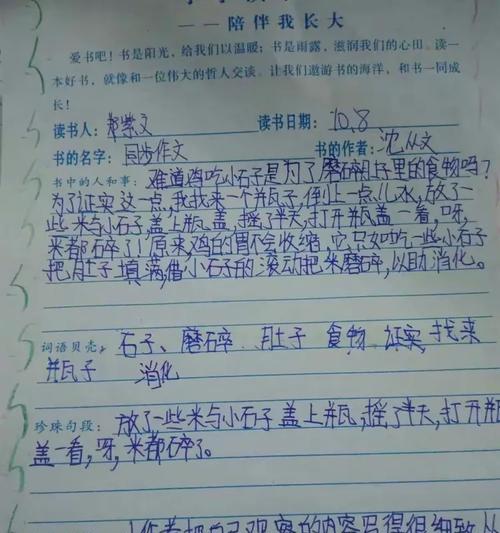 ——陪伴我长大
爱书吧！书是阳光，给我们以温暖；书是雨露，滋润我们的心田。读一
本好书，就像和一位伟大的哲人交谈。让我们遨游书的海洋，和书一同成
长！
读书人： 郭紫文 读书日期： 10.8
书的名字： 同步作文 书的作者： 沈从文
书中的人和事： 难道鸡吃小石子是为了磨碎肚子里的食物吗？
为了证实这一点，我找来一个并瓦子，倒上一点儿水，放了一
些米与小石子，盖上并瓦盖，摇了半天，打开并瓦盖一看，呀，
米都碎了！原来，鸡的胃不会收缩，它只好吃一些小石子
把肚子填满，借小石子的滚动把米磨碎，以助消化。
词语贝壳： 石子、磨碎 肚子 食物 证实 找来
并瓦子 消化
珍珠句段： 放了一些米与小石子盖上并瓦，摇了半天，打开并瓦
盖一看，呀，米都碎了。
作者把自己观察的内容写得很细致从